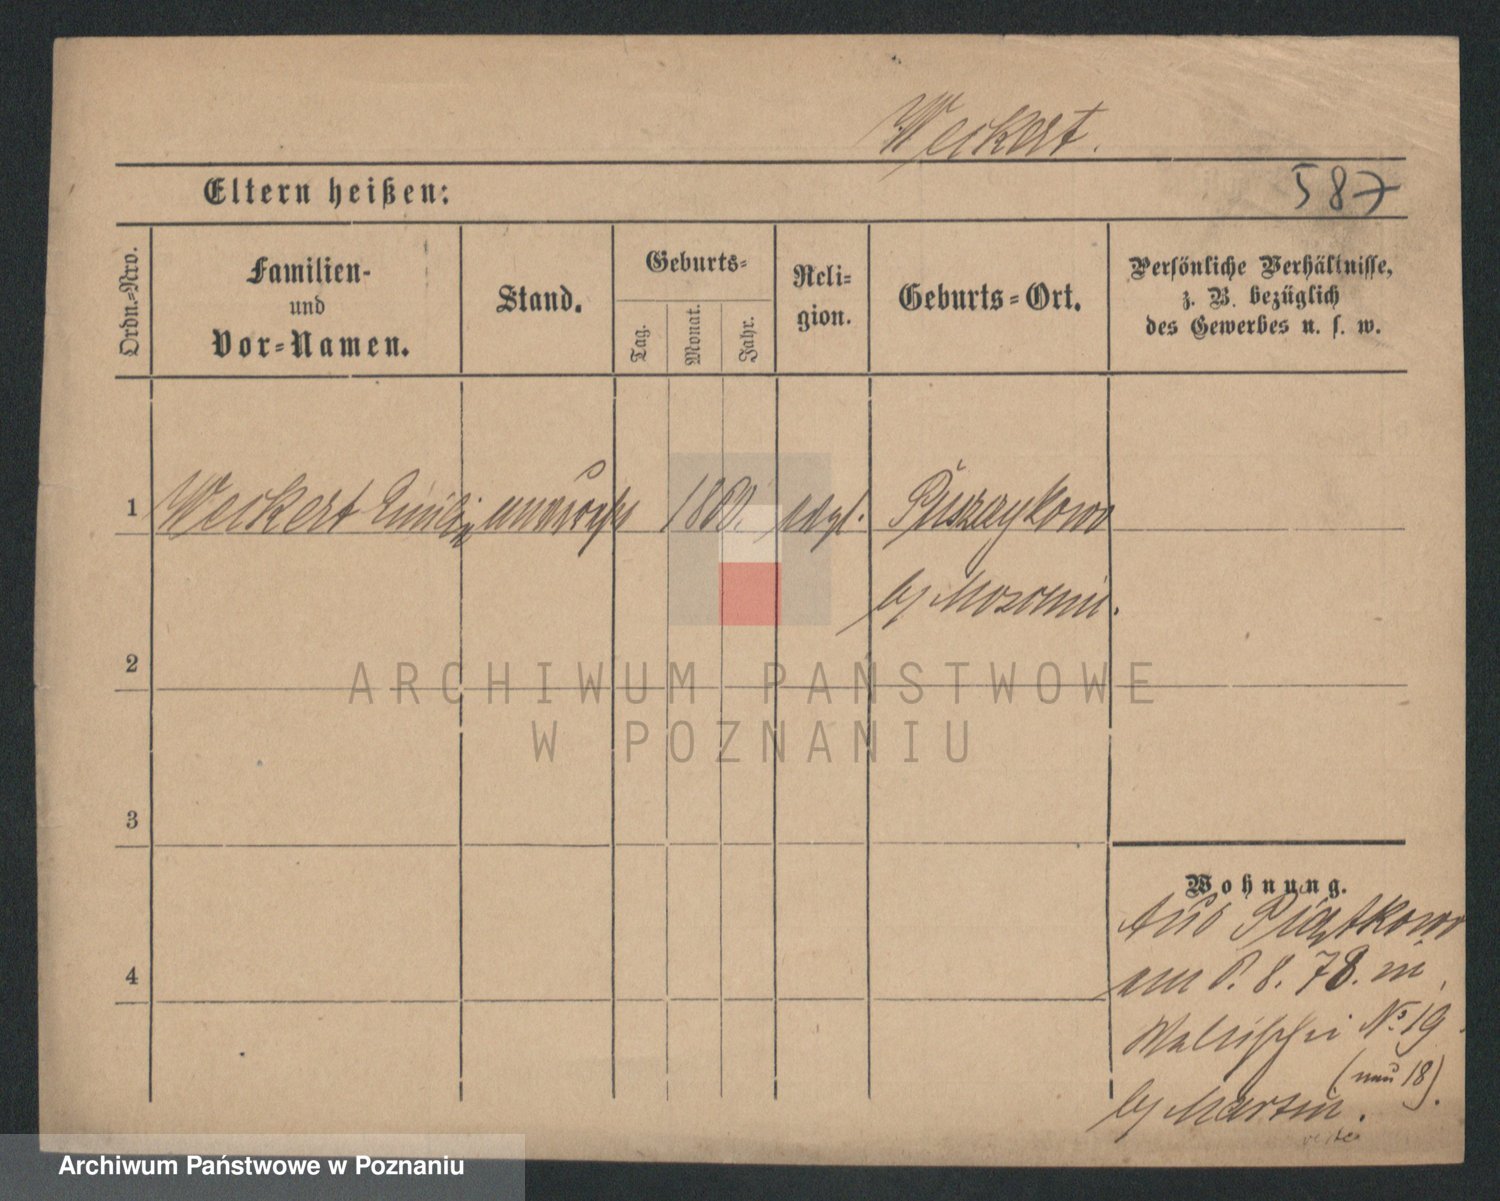 Weckert.
Eltern heißen:
587
Ordn.-Nro.
Familien-
und
Vor-Namen.
Stand.
Geburts-
Tag.
Monat.
Jahr.
Reli-
gion.
Geburts-Ort.
Persönliche Verhältnisse,
z. B. bezüglich
des Gewerbes u. s. w.
1
Weckert Emilie 1860. evgl. Puszczykowo
by Moschin.
2
ARCHIWUM PAŃSTWOWE
W POZNANIU
3
Wohnung.
Aus Piątkowo
4
am 8. 78. in
Wallischei No 19
(neu 18).
by Martin.
Archiwum Państwowe w Poznaniu